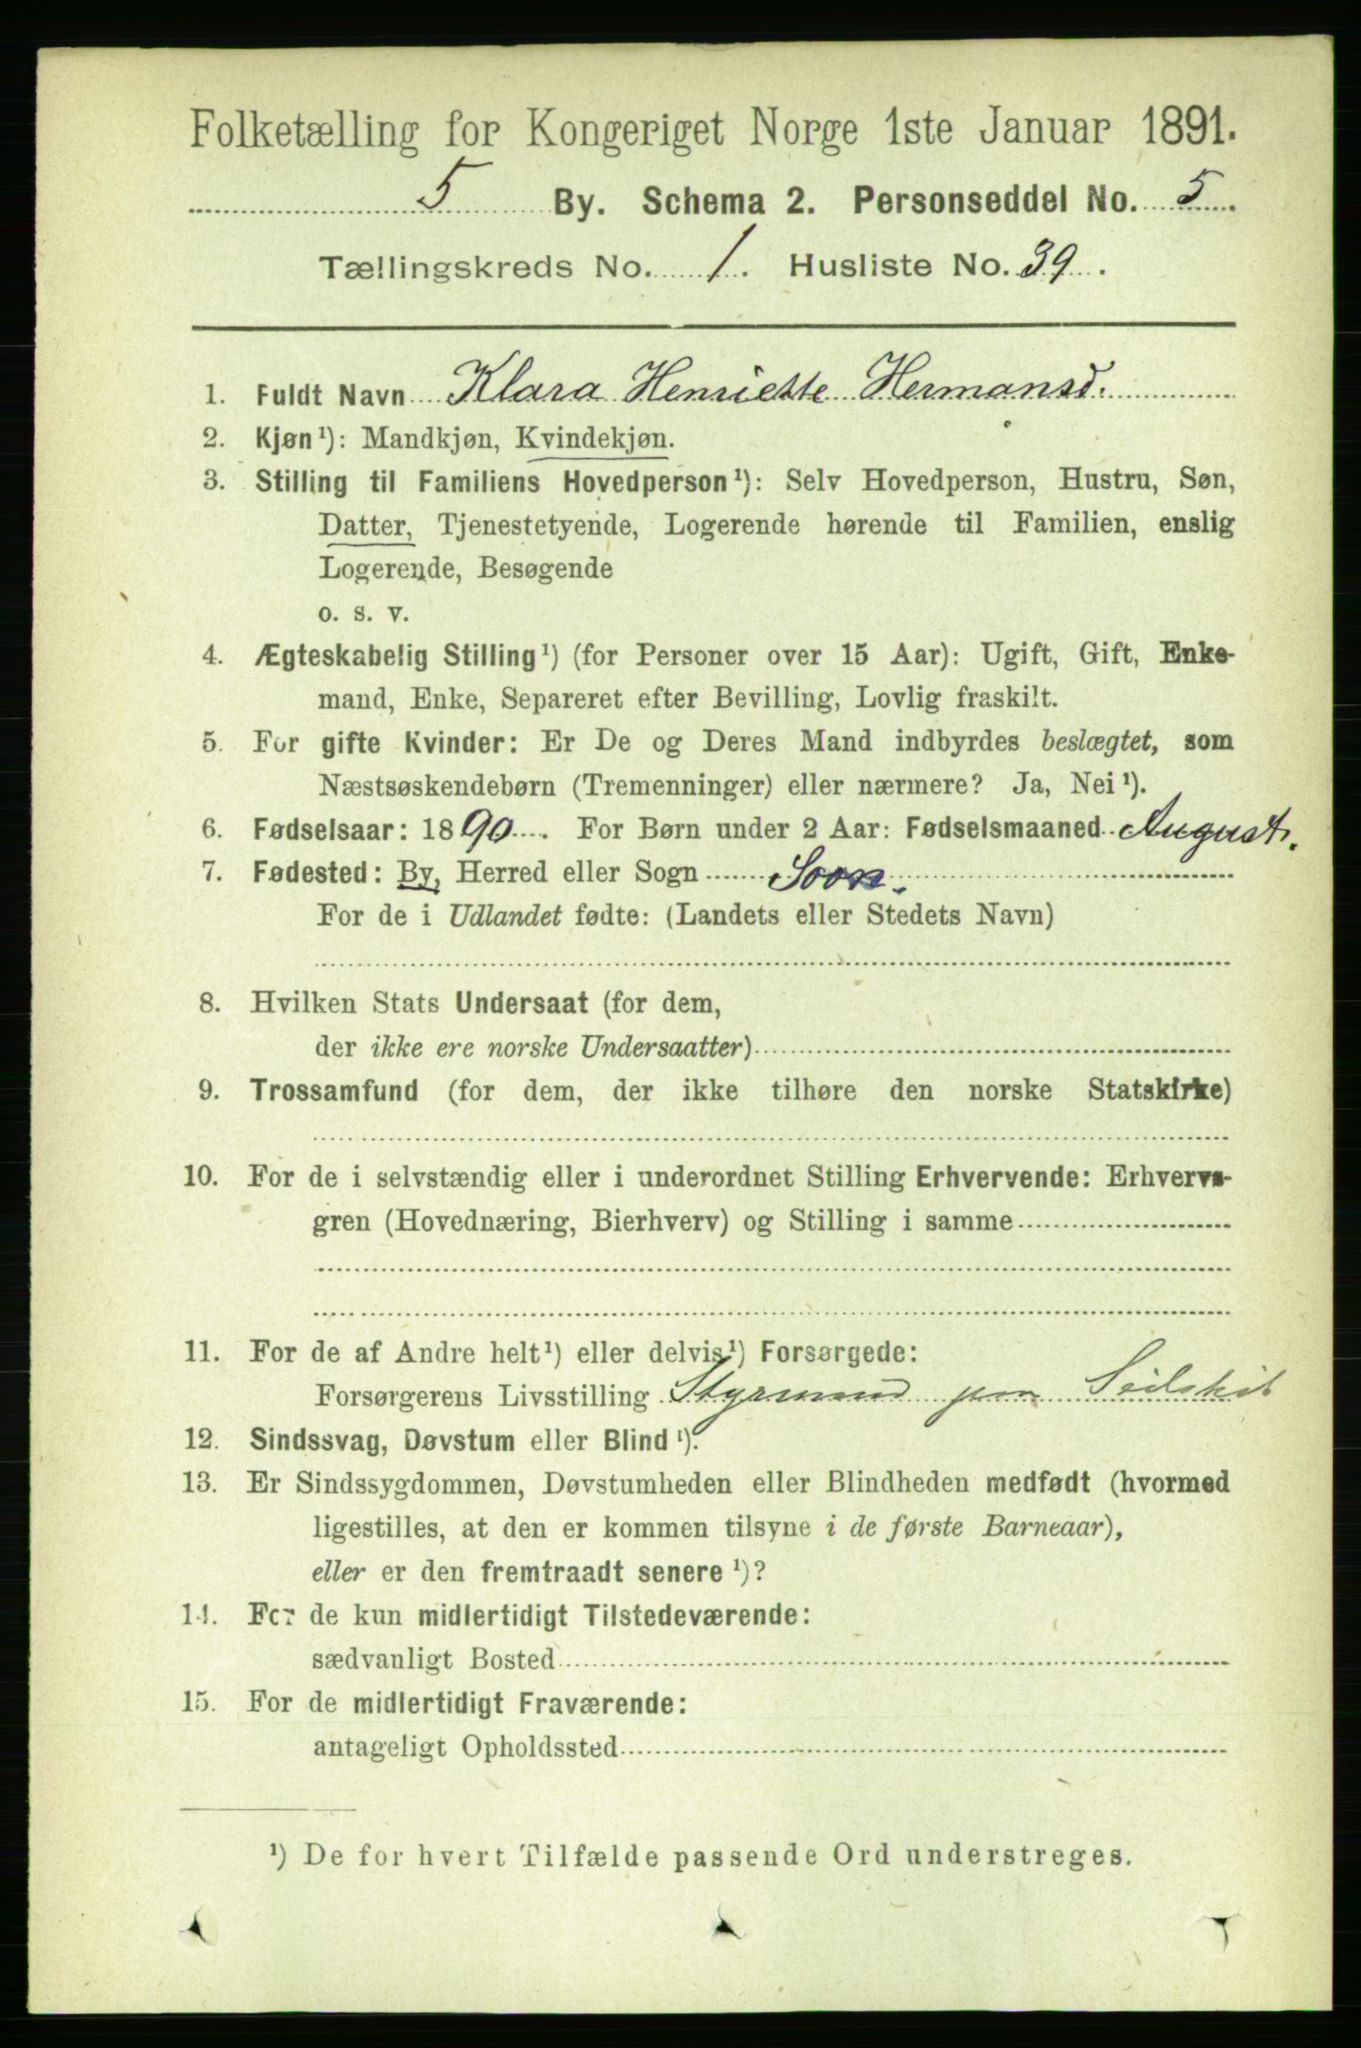 Folketælling for Kongeriget Norge 1ste Januar 1891.
5 By. Schema 2. Personseddel No. 5.
Tællingskreds No. 1. Husliste No. 39.
1. Fuldt Navn Klara Henriette Hermansd.
2. Kjøn¹): Mandkjøn, Kvindekjøn.
3. Stilling til Familiens Hovedperson¹): Selv Hovedperson, Hustru, Søn,
Datter, Tjenestetyende, Logerende hørende til Familien, enslig
Logerende, Besøgende
o. s. v.
4. Ægteskabelig Stilling¹) (for Personer over 15 Aar): Ugift, Gift, Enke-
mand, Enke, Separeret efter Bevilling, Lovlig fraskilt.
5. For gifte Kvinder: Er De og Deres Mand indbyrdes beslægtet, som
Næstsøskendebørn (Tremenninger) eller nærmere? Ja, Nei¹).
6. Fødselsaar: 1890. For Børn under 2 Aar: Fødselsmaaned August.
7. Fødested: By, Herred eller Sogn Soon.
For de i Udlandet fødte: (Landets eller Stedets Navn)
8. Hvilken Stats Undersaat (for dem,
der ikke ere norske Undersaatter)
9. Trossamfund (for dem, der ikke tilhøre den norske Statskirke)
10. For de i selvstændig eller i underordnet Stilling Erhvervende: Erhvervs-
gren (Hovednæring, Bierhverv) og Stilling i samme
11. For de af Andre helt¹) eller delvis¹) Forsørgede:
Forsørgerens Livsstilling Styrmand paa Seilskib
12. Sindssvag, Døvstum eller Blind¹).
13. Er Sindssygdommen, Døvstumheden eller Blindheden medfødt (hvormed
ligestilles, at den er kommen tilsyne i de første Barneaar),
eller er den fremtraadt senere¹)?
14. For de kun midlertidigt Tilstedeværende:
sædvanligt Bosted
15. For de midlertidigt Fraværende:
antageligt Opholdssted
¹) De for hvert Tilfælde passende Ord understreges.